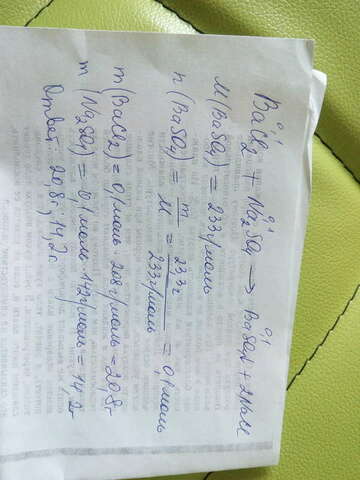 0,1 0,1 0,1
BaCl2 + Na2SO4 → BaSO4 + 2NaCl
M(BaSO4) = 233г/моль
n(BaSO4) = m/M = 23,3г/233г/моль = 0,1моль
m(BaCl2) = 0,1моль · 208г/моль = 20,8г
m(Na2SO4) = 0,1моль · 142г/моль = 14,2г
Ответ: 20,8г; 14,2г